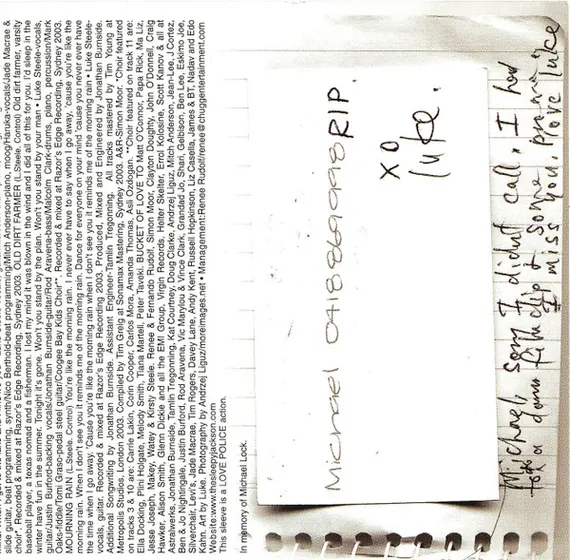 slide guitar, beat programming, synth/Nico Berthold-beat programming/Mitch Anderson-piano, moog/Haruka-vocals/Jade Macrae &
choir*. Recorded & mixed at Razor's Edge Recording, Sydney 2003. OLD DIRT FARMER (L.Steele, Control) Old dirt farmer, varsity
baseball player, a texas nomad and a fisherman. I lost my mind it was blown in the wind and I did all of this for you. I'd sleep in the
winter have fun in the summer. Tonight it's gone. Won't you stand by the plan. Won't you stand by your man • Luke Steele-vocals,
guitar/Justin Burford-backing vocals/Jonathan Burnside-guitar/Rod Aravena-bass/Malcolm Clark-drums, piano, percussion/Mark
Oaks-fiddle/Tomi Gras-pedal steel guitar/Coogee Bay Kids Choir**. Recorded & mixed at Razor's Edge Recording, Sydney 2003.
MOURNING RAIN (L.Steele, Control) You're like the morning rain. I never ever have to say when I go away, 'cause you're like the
morning rain. When I don't see you it reminds me of the morning rain. Dance for everyone on your mind 'cause you never ever have
the time when I go away. 'Cause you're like the morning rain when I don't see you it reminds me of the morning rain • Luke Steele-
vocals, guitar. Recorded & mixed at Razor's Edge Recording 2003. Produced, Mixed and Engineered by Jonathan Burnside.
Additional Songwriting by Jonathan Burnside. Assistant Engineer-Tamlin Tregonning. All tracks mastered by Tim Young at
Metropolis Studios, London 2003. Compiled by Tim Greig at Sonamax Mastering, Sydney 2003. A&R-Simon Moor. *Choir featured
on tracks 3 & 10 are: Carrie Lakin, Corin Cooper, Carlos Mora, Amanda Thomas, Asli Ozdogan. **Choir featured on track 11 are:
Ella Docking, Pini Holgate, Melody Smith, Tiana Martell, Peter Tavaki. BUCKET OF LOVE TO Matt O'Connor, Papa Rick, Ma Liz,
Jesse Joseph, Makey, Watey & Kirsty Steele. Renee & Fernando Rudolf, Simon Moor, Clayton Doughty, John O'Donnell, Craig
Hawker, Alison Smith, Glenn Dickie and all the EMI Group, Virgin Records, Helter Skelter, Errol Kolosine, Scott Kanov & all at
Astralwerks, Jonathan Burnside, Tamlin Tregonning, Kat Courtney, Doug Clarke, Andrzej Liguz, Mitch Anderson, Jean-Lee, J Cortez,
Ben & Jo Nightingale, Justin Burford, Rod Aravena, Vic Marylou & Vince Clark, Grandad Jo, Shari, Gelbison, Ben Lee, Eskimo Joe,
Silverchair, Levi's, Jade Macrae, Tim Rogers, Davey Lane, Andy Kent, Russell Hopkinson, Liz Casella, James & BT, Nadav and Edo
Kahn. Art by Luke. Photography by Andrzej Liguz/moreimages.net • Management:Renee Rudolf/renee@chuggentertainment.com
Website:www.thesleepyjackson.com
This sleeve is a LOVE POLICE action.
In memory of Michael Lock.
Michael 0418869998 RIP.
XO
luke.
Michael, sorry I didnt call, I had
a damn film clip &
miss you, love luke